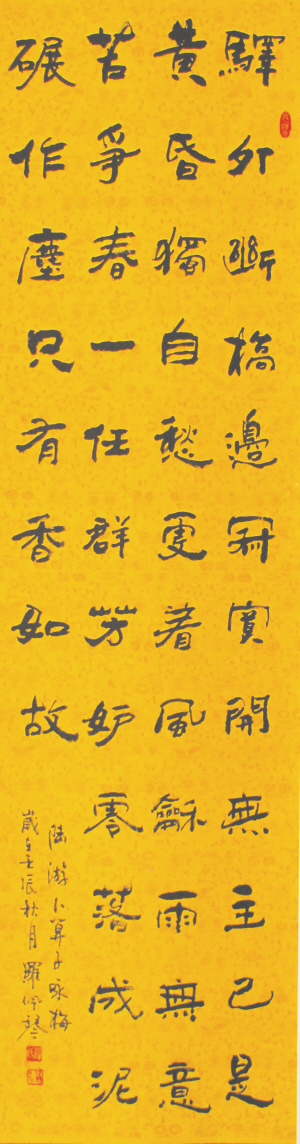 驛外斷橋邊寂寞開無主已是
黃昏獨自愁更着風龢雨無意
苦爭春一任群芳妒零落成泥
碾作塵只有香如故
陸游卜算子詠梅
歲在壬辰秋月羅佩琴